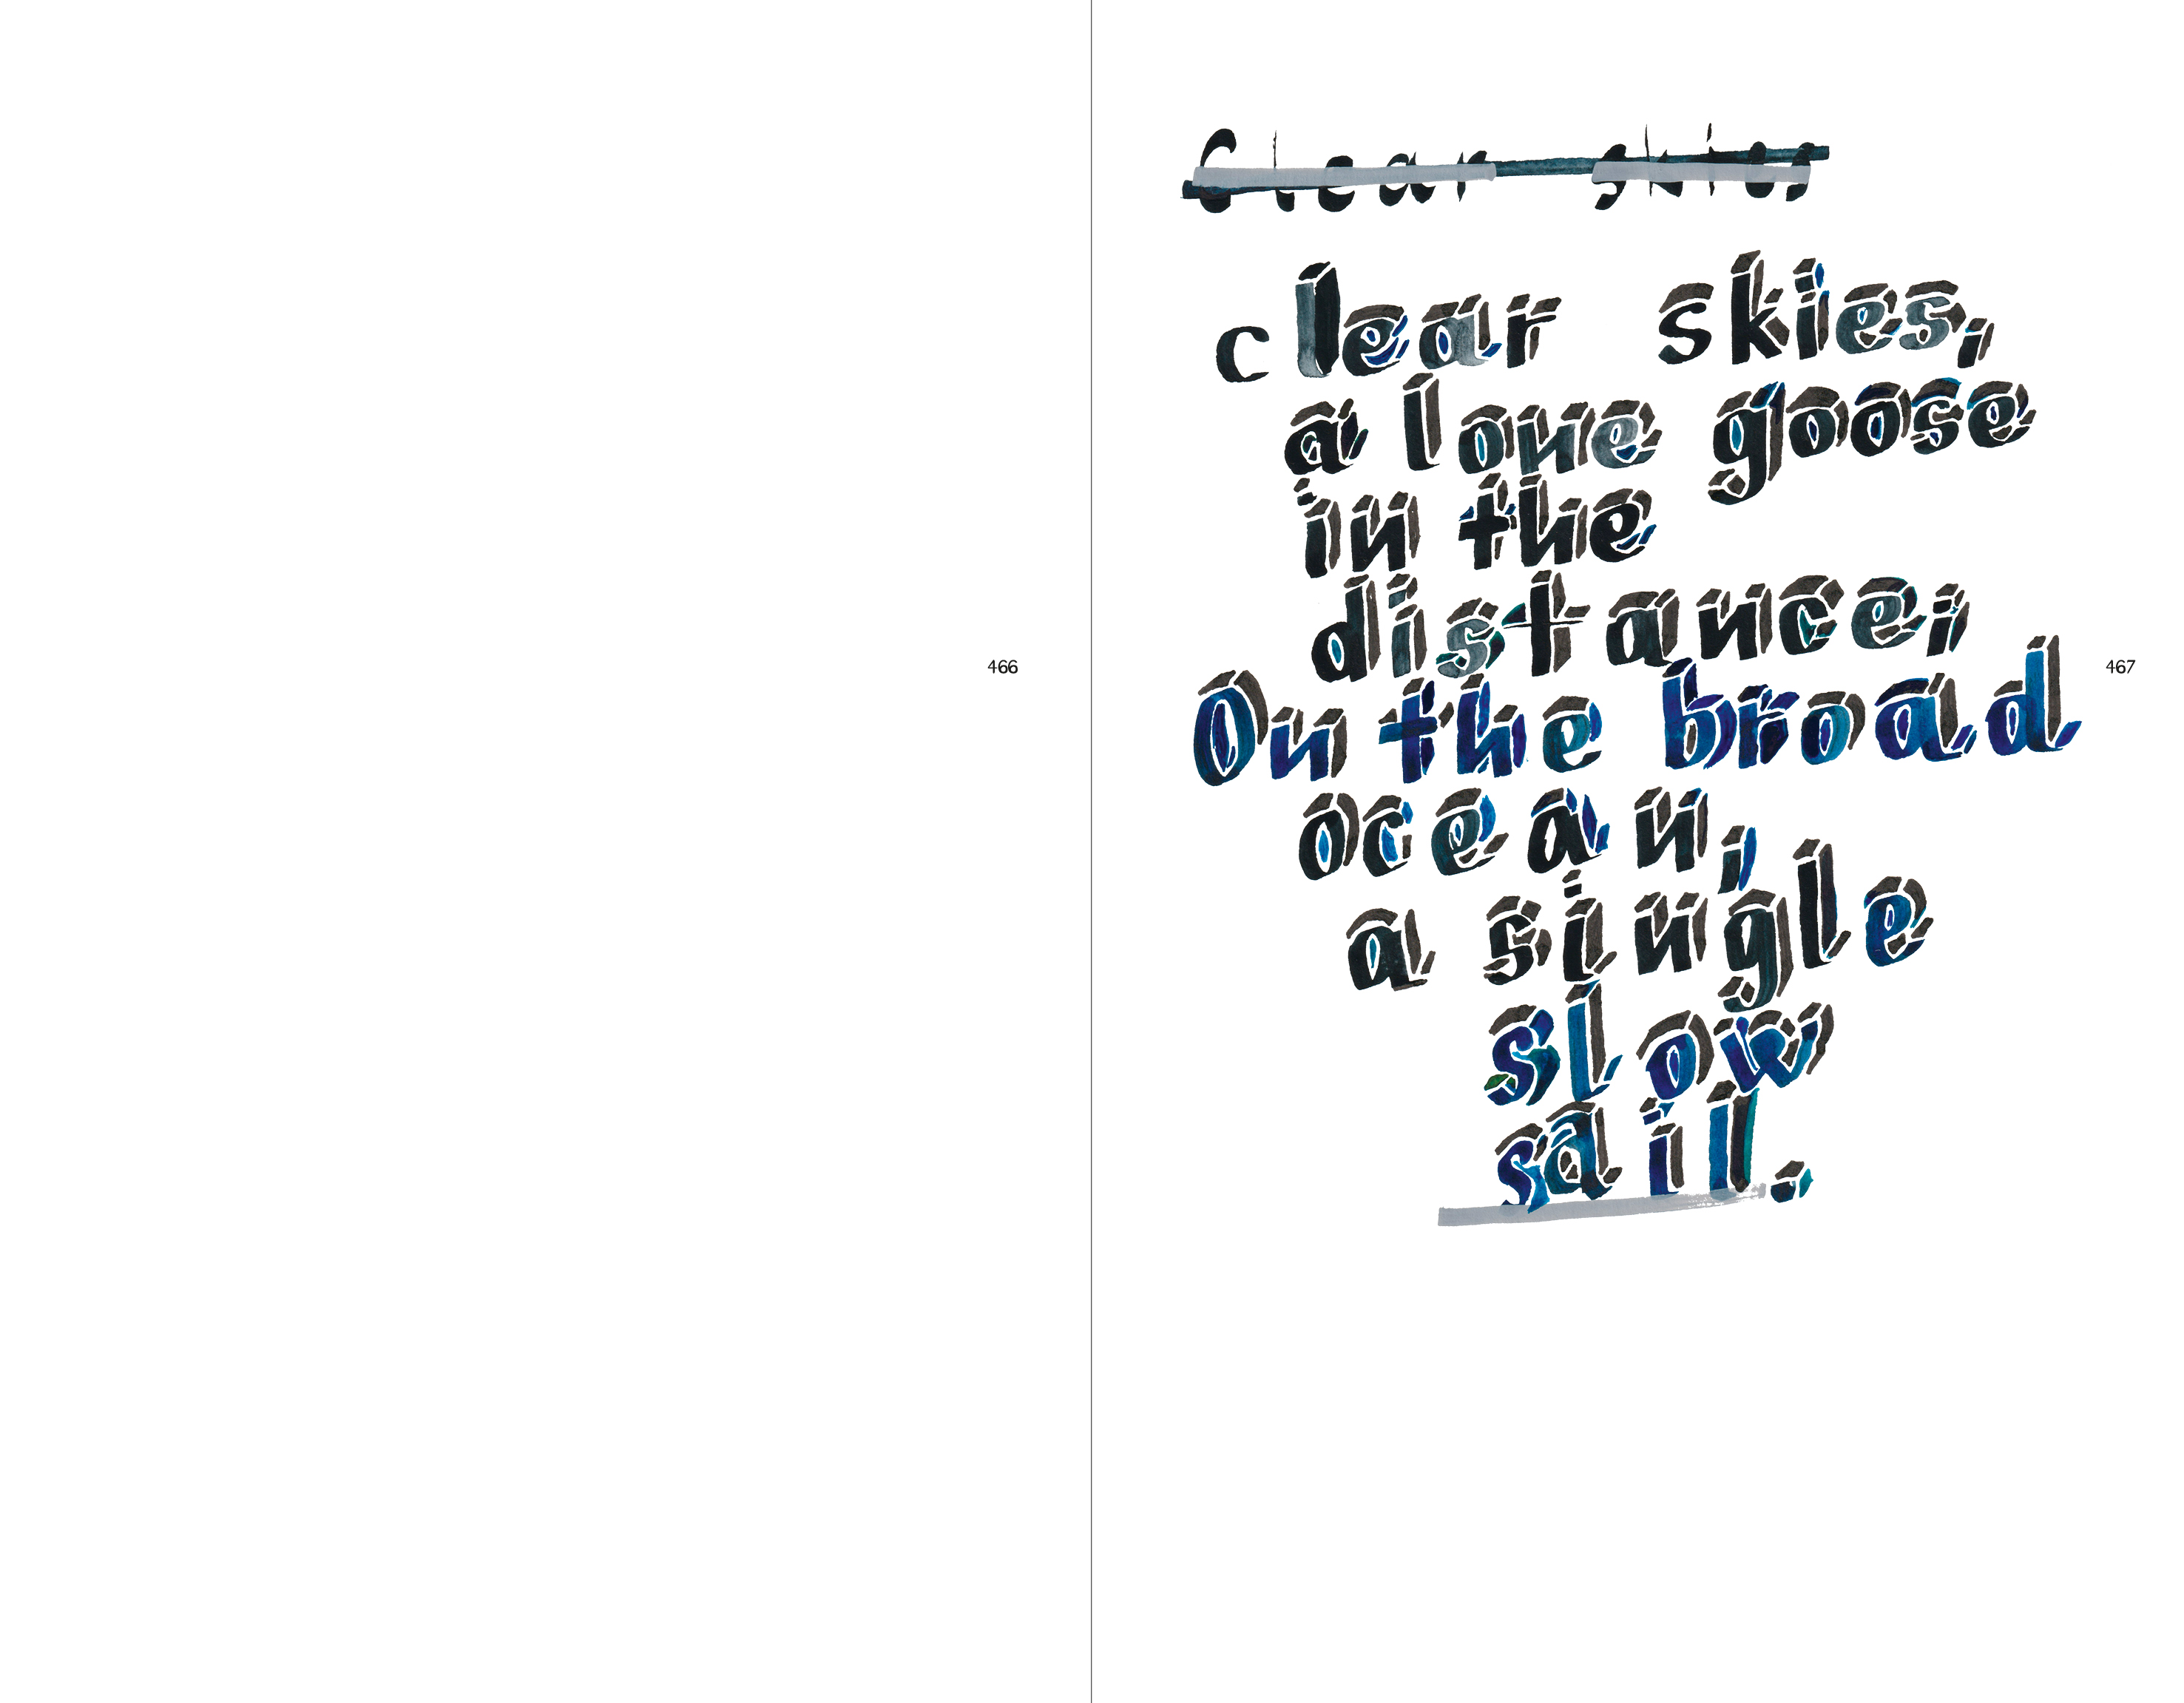 466
Clear skies
clear skies,
a lone goose
in the
distance,
On the broad
ocean,
a single
slow
sail.
467